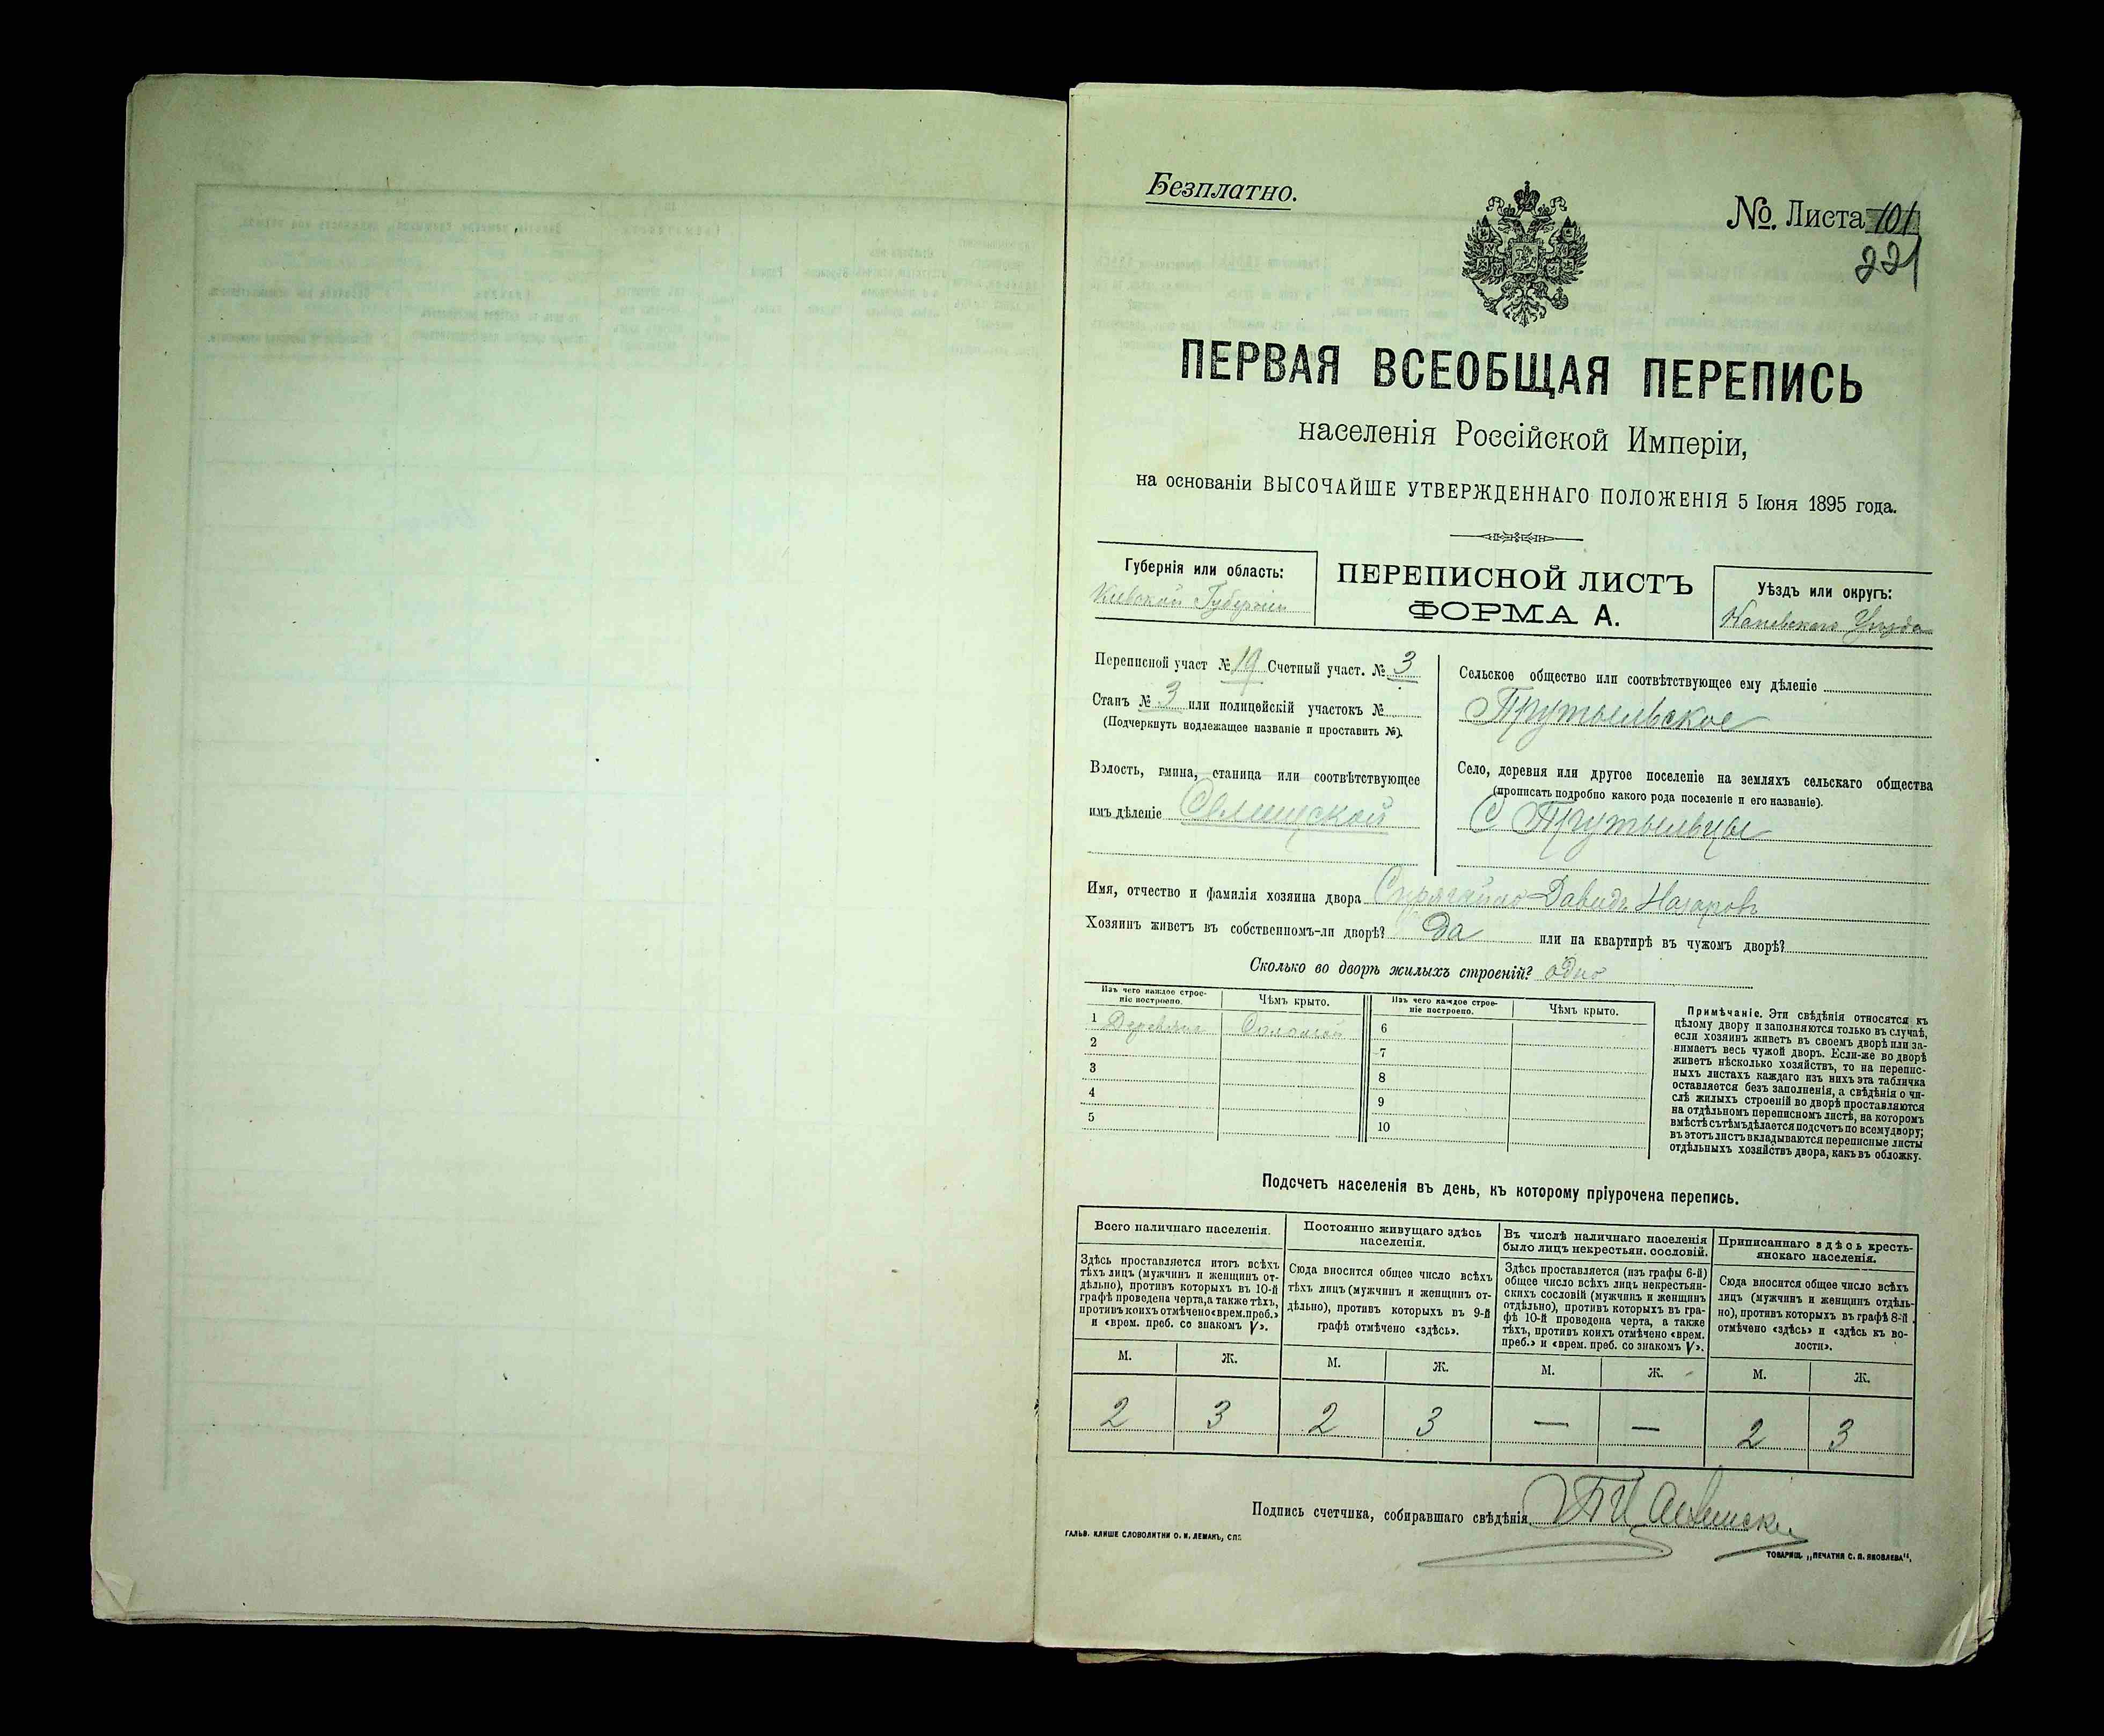 Безплатно.
№. Листа 101
221
ПЕРВАЯ ВСЕОБЩАЯ ПЕРЕПИСЬ
населенія Россійской Имперіи,
на основаніи ВЫСОЧАЙШЕ УТВЕРЖДЕННАГО ПОЛОЖЕНІЯ 5 Іюня 1895 года.
Губернія или область:
Киевской Губерніи
ПЕРЕПИСНОЙ ЛИСТЪ
ФОРМА А.
Уѣздъ или округъ:
Каневскаго Уѣзда
Переписной участ № 19 Счетный участ. № 3
Станъ № 3 или полицейскій участокъ №
(Подчеркнуть подлежащее названіе и проставить №).
Волость, гмина, станица или соотвѣтствующее
имъ дѣленіе Селищской
Сельское общество или соотвѣтствующее ему дѣленіе
Прутыльское
Село, деревня или другое поселеніе на земляхъ сельскаго общества
(прописать подробно какого рода поселеніе и его названіе).
С Прутыльцы
Имя, отчество и фамилія хозяина двора Давидъ Назаровъ
Хозяинъ живетъ въ собственномъ-ли дворѣ? Да или на квартирѣ въ чужомъ дворѣ?
Сколько во дворѣ жилыхъ строеній? одно
Изъ чего каждое строе-
ніе построено.
Чѣмъ крыто.
Изъ чего каждое строе-
ніе построено.
Чѣмъ крыто.
1 Деревяно Соломой
2
3
4
5
6
7
8
9
10
Примѣчаніе. Эти свѣдѣнія относятся къ
цѣлому двору и заполняются только въ случаѣ,
если хозяинъ живетъ въ своемъ дворѣ или за-
нимаетъ весь чужой дворъ. Если-же во дворѣ
живетъ нѣсколько хозяйствъ, то на перепис-
ныхъ листахъ каждаго изъ нихъ эта табличка
оставляется безъ заполненія, а свѣдѣнія о чи-
слѣ жилыхъ строеній во дворѣ проставляются
на отдѣльномъ переписномъ листѣ, на которомъ
вмѣстѣ съ тѣмъ дѣлается подсчетъ по всему двору;
въ этотъ листъ вкладываются переписные листы
отдѣльныхъ хозяйствъ двора, какъ въ обложку.
Подсчетъ населенія въ день, къ которому пріурочена перепись.
Всего наличнаго населенія.
Здѣсь проставляется итогъ всѣхъ
тѣхъ лицъ (мужчинъ и женщинъ от-
дѣльно), противъ которыхъ въ 10-й
графѣ проведена черта, а также тѣхъ,
противъ коихъ отмѣчено «врем. преб.»
и «врем. преб. со знакомъ V».
Постоянно живущаго здѣсь
населенія.
Сюда вносится общее число всѣхъ
тѣхъ лицъ (мужчинъ и женщинъ от-
дѣльно), противъ которыхъ въ 9-й
графѣ отмѣчено «здѣсь».
Въ числѣ наличнаго населенія
было лицъ некрестьян. сословій.
Здѣсь проставляется (изъ графы 6-й)
общее число всѣхъ лицъ некрестьян-
скихъ сословій (мужчинъ и женщинъ
отдѣльно), противъ которыхъ въ гра-
фѣ 10-й проведена черта, а также
тѣхъ, противъ коихъ отмѣчено «врем.
преб.» и «врем. преб. со знакомъ V».
Приписаннаго здѣсь кресть-
янскаго населенія.
Сюда вносится общее число всѣхъ
лицъ (мужчинъ и женщинъ отдѣль-
но), противъ которыхъ въ графѣ 8-й
отмѣчено «здѣсь» и «здѣсь къ во-
лости».
М. Ж. М. Ж. М. Ж. М. Ж.
2 3 2 3 — — 2 3
Подпись счетчика, собиравшаго свѣдѣнія
ГАЛЬВ. КЛИШЕ СЛОВОЛИТНИ О. И. ЛЕМАНЪ, СПБ.
ТОВАРИЩ. „ПЕЧАТНЯ С. П. ЯКОВЛЕВА“.